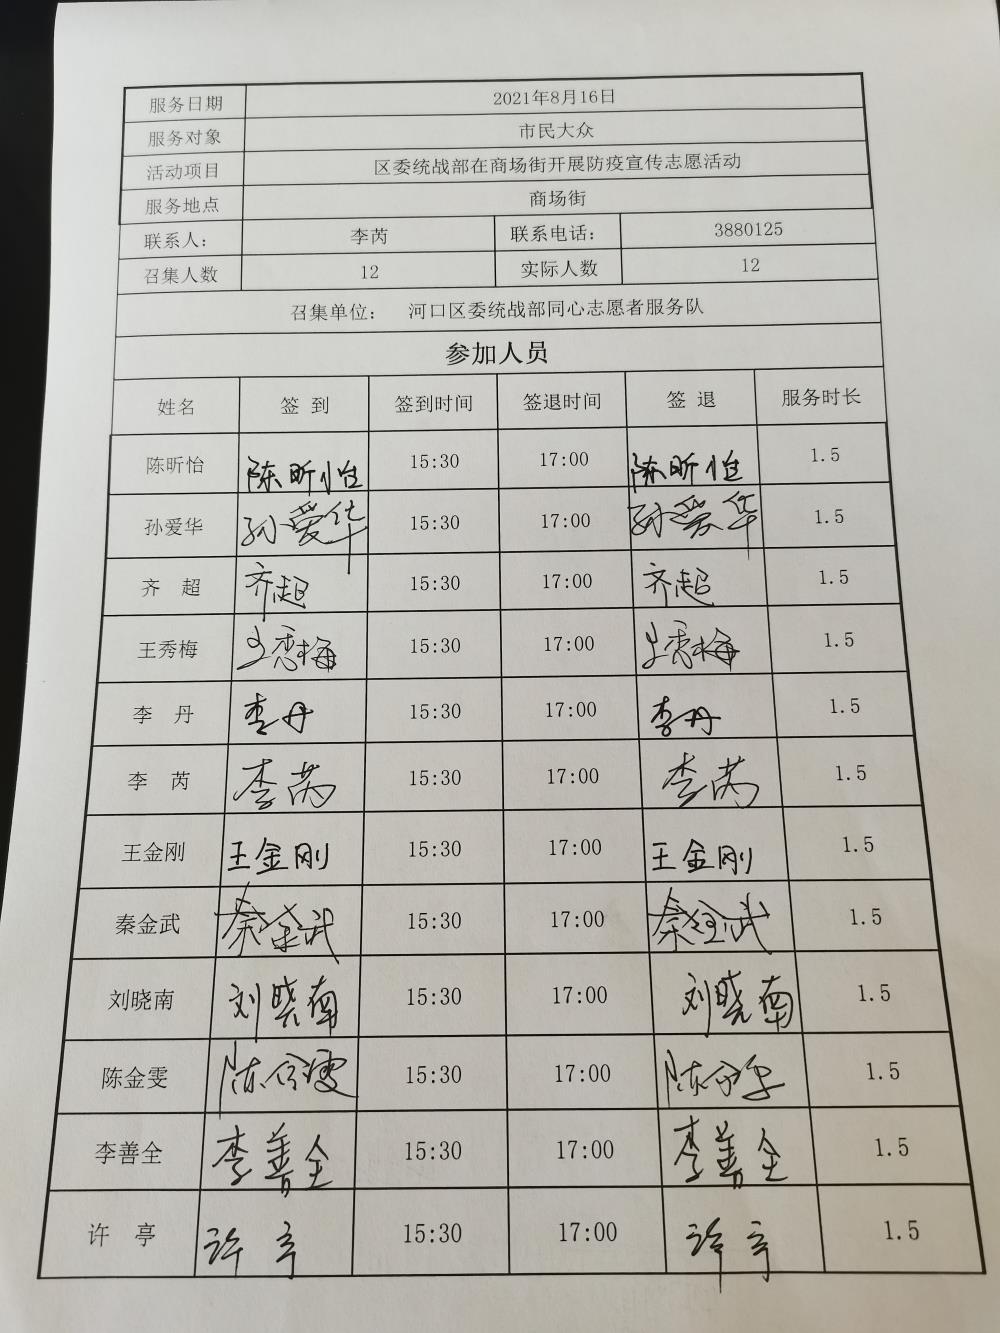 服务日期 2021年8月16日
服务对象 市民大众
活动项目 区委统战部在商场街开展防疫宣传志愿活动
服务地点 商场街
联系人： 李芮 联系电话： 3880125
召集人数 12 实际人数 12
召集单位： 河口区委统战部同心志愿者服务队
参加人员
姓名 签 到 签到时间 签退时间 签 退 服务时长
陈昕怡 陈昕怡 15:30 17:00 陈昕怡 1.5
孙爱华 孙爱华 15:30 17:00 孙爱华 1.5
齐 超 齐超 15:30 17:00 齐超 1.5
王秀梅 王秀梅 15:30 17:00 王秀梅 1.5
李 丹 李丹 15:30 17:00 李丹 1.5
李 芮 李芮 15:30 17:00 李芮 1.5
王金刚 王金刚 15:30 17:00 王金刚 1.5
秦金武 秦金武 15:30 17:00 秦金武 1.5
刘晓南 刘晓南 15:30 17:00 刘晓南 1.5
陈金雯 陈金雯 15:30 17:00 陈金雯 1.5
李善全 李善全 15:30 17:00 李善全 1.5
许 亭 许亭 15:30 17:00 许亭 1.5